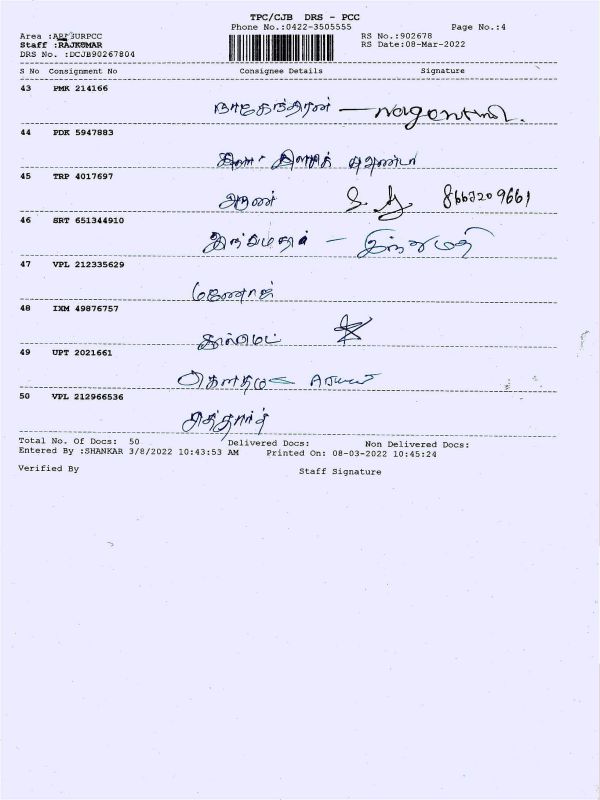 TPC/CJB DRS - PCC
Phone No.:0422-3505555 Page No.:4
Area : RS No.:902678
Staff :RAJKUMAR RS Date:08-Mar-2022
DRS No. :DCJB90267804
S No Consignment No Consignee Details Signature
43 PMK 214166
நாகேந்திரன் —
44 PDK 5947883
45 TRP 4017697
அருண் 8663209661
46 SRT 651344910
இந்துமதி — இந்துமதி
47 VPL 212335629
மனோஜ்
48 IXM 49876757
49 UPT 2021661
கௌதம்
50 VPL 212966536
சித்தார்த்
Total No. Of Docs: 50 Delivered Docs: Non Delivered Docs:
Entered By :SHANKAR 3/8/2022 10:43:53 AM Printed On: 08-03-2022 10:45:24
Verified By Staff Signature